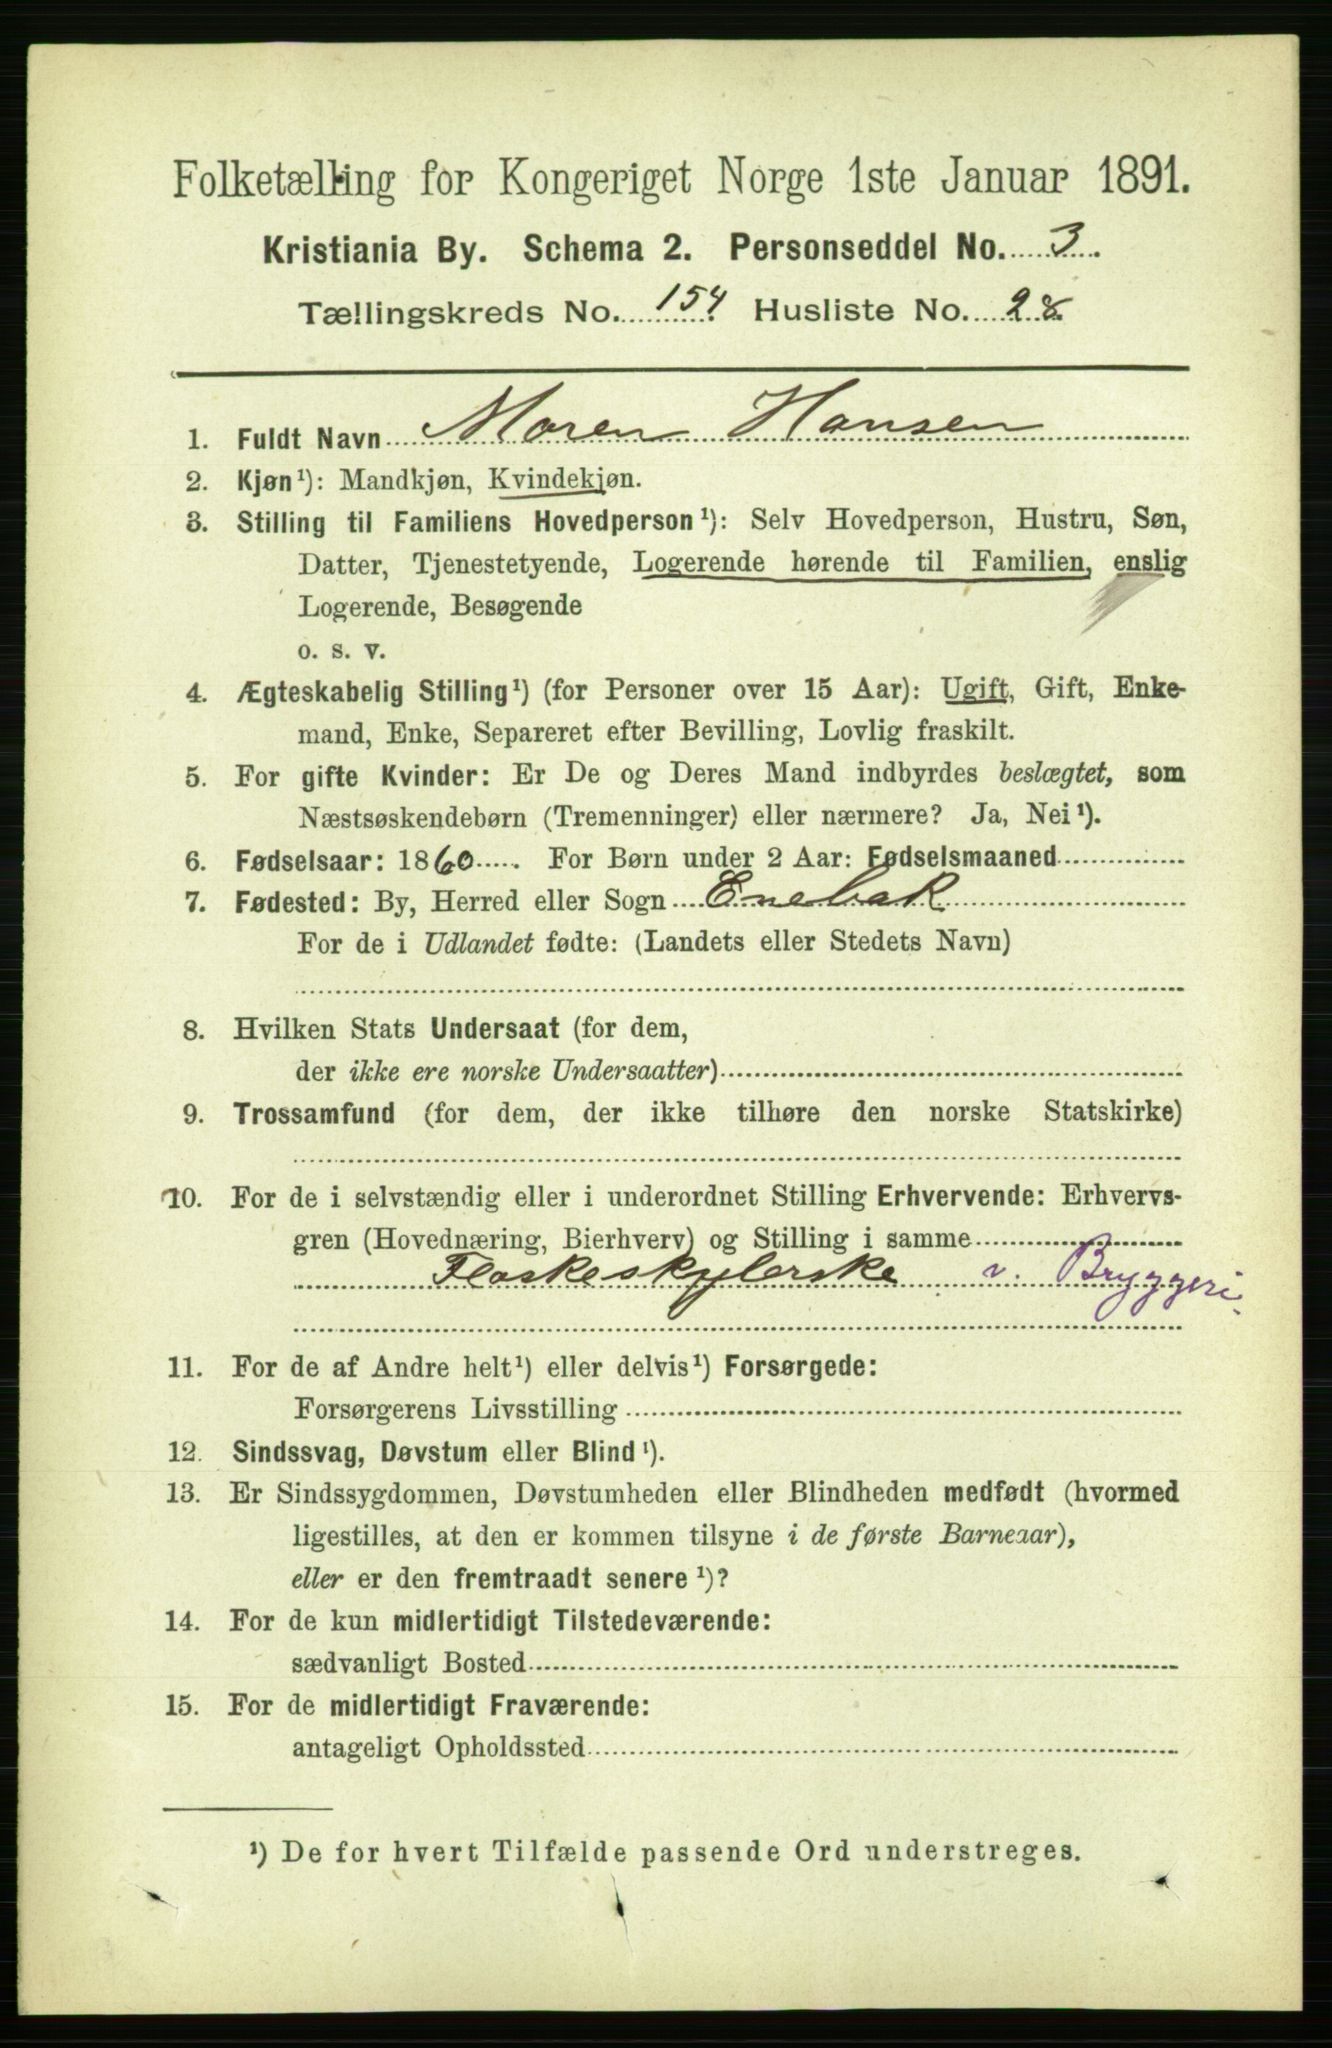 Folketælling for Kongeriget Norge 1ste Januar 1891.
Kristiania By. Schema 2. Personseddel No. 3.
Tællingskreds No. 154 Husliste No. 28
1. Fuldt Navn Maren Hansen
2. Kjøn¹): Mandkjøn, Kvindekjøn.
3. Stilling til Familiens Hovedperson¹): Selv Hovedperson, Hustru, Søn,
Datter, Tjenestetyende, Logerende hørende til Familien, enslig
Logerende, Besøgende
o. s. v.
4. Ægteskabelig Stilling¹) (for Personer over 15 Aar): Ugift, Gift, Enke-
mand, Enke, Separeret efter Bevilling, Lovlig fraskilt.
5. For gifte Kvinder: Er De og Deres Mand indbyrdes beslægtet, som
Næstsøskendebørn (Tremenninger) eller nærmere? Ja, Nei¹).
6. Fødselsaar: 1860. For Børn under 2 Aar: Fødselsmaaned
7. Fødested: By, Herred eller Sogn Enebak
For de i Udlandet fødte: (Landets eller Stedets Navn)
8. Hvilken Stats Undersaat (for dem,
der ikke ere norske Undersaatter)
9. Trossamfund (for dem, der ikke tilhøre den norske Statskirke)
10. For de i selvstændig eller i underordnet Stilling Erhvervende: Erhvervs-
gren (Hovednæring, Bierhverv) og Stilling i samme
Flaskeskylerske v. Bryggeri.
11. For de af Andre helt¹) eller delvis¹) Forsørgede:
Forsørgerens Livsstilling
12. Sindssvag, Døvstum eller Blind¹).
13. Er Sindssygdommen, Døvstumheden eller Blindheden medfødt (hvormed
ligestilles, at den er kommen tilsyne i de første Barneaar),
eller er den fremtraadt senere¹)?
14. For de kun midlertidigt Tilstedeværende:
sædvanligt Bosted
15. For de midlertidigt Fraværende:
antageligt Opholdssted
¹) De for hvert Tilfælde passende Ord understreges.